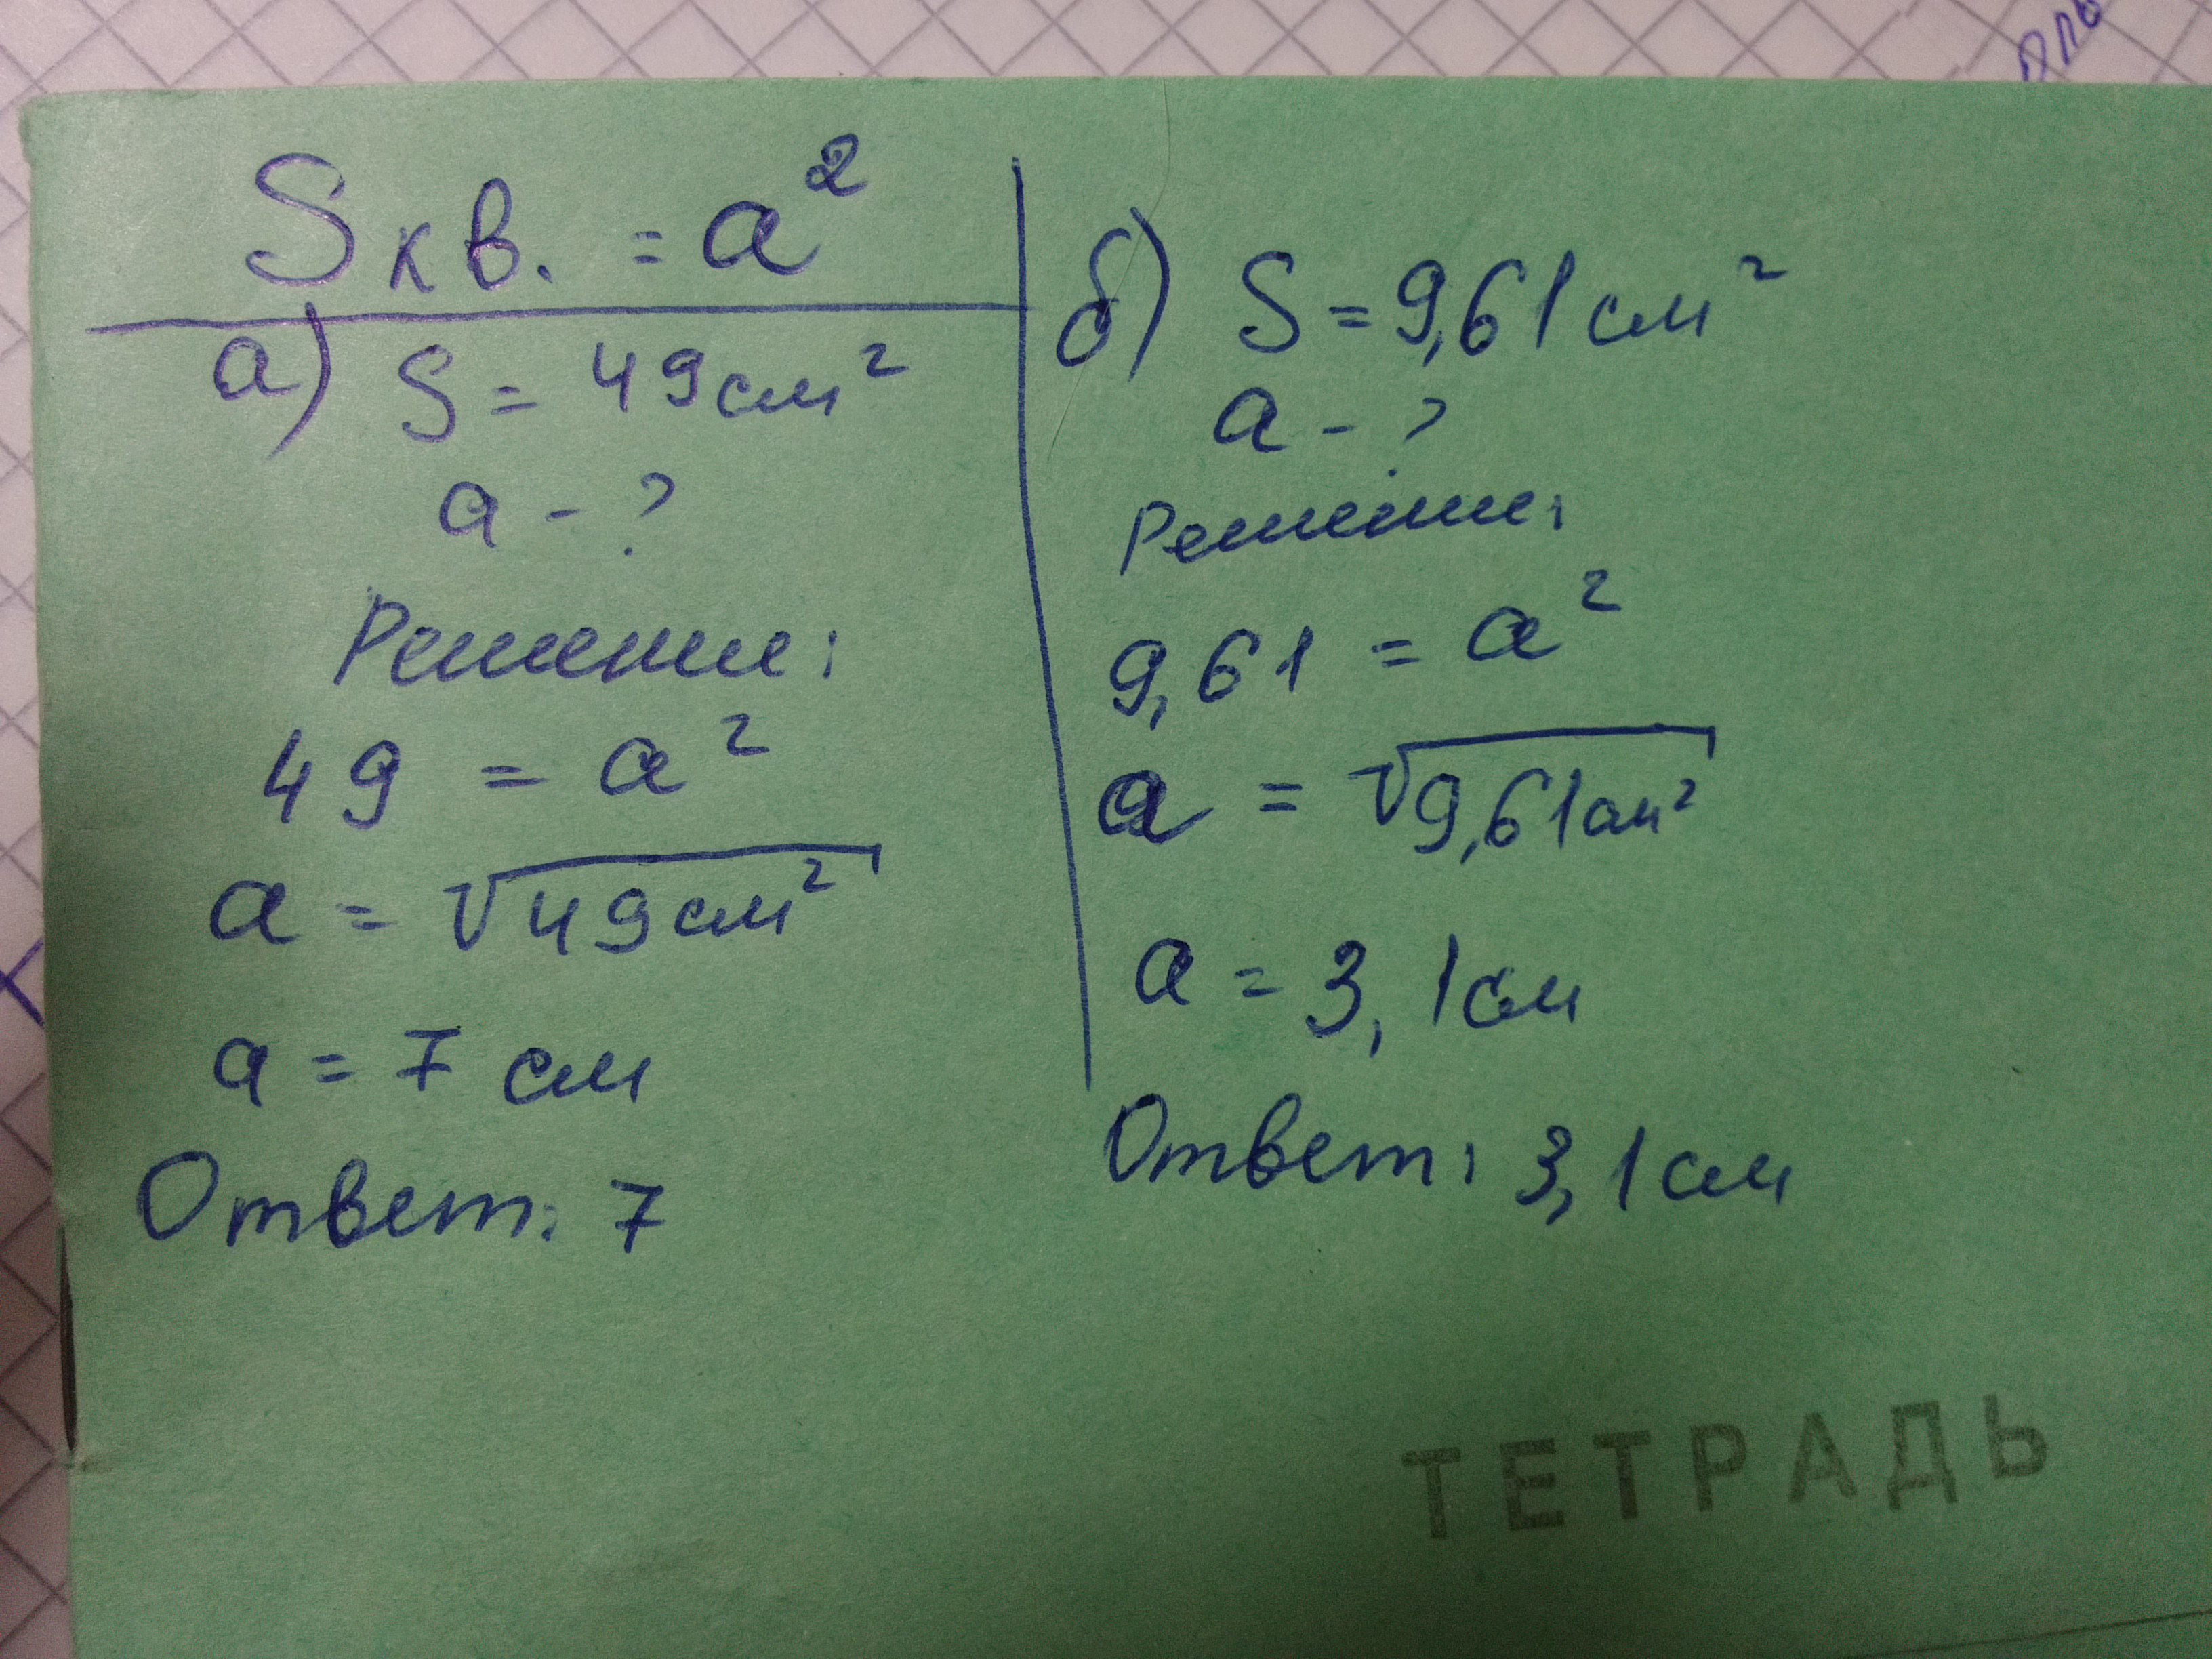 Sкв. = a²
а) S = 49см²
a - ?
Решение:
49 = a²
a = √49см²
a = 7 см
Ответ: 7
б) S = 9,61см²
a - ?
Решение:
9,61 = a²
a = √9,61см²
a = 3,1см
Ответ: 3,1см
ТЕТРАДЬ